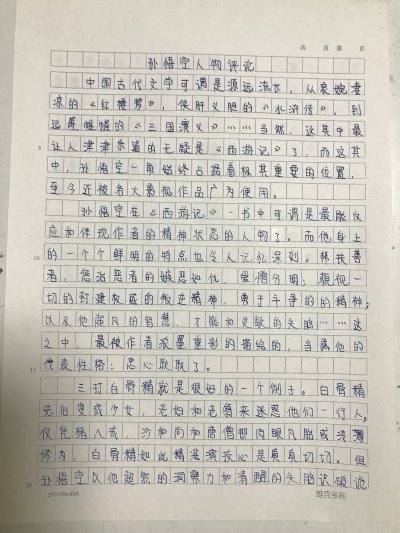 共 页 第 页
孙悟空人物评论
中国古代文学可谓是源远流长,从哀婉凄
凉的《红楼梦》,侠肝义胆的《水浒传》,到
运筹帷幄的《三国演义》……当然,这其中最
让人津津乐道的无疑是《西游记》了,而这其
5
中,孙悟空一角始终占据着极其重要的位置,
至今还被各大影视作品广为使用。
孙悟空在《西游记》一书中可谓是最能反
应和体现作者的精神状态的人物了。而他身上
的一个个鲜明的特点也令人记忆深刻。帮扶善
10
者,惩治恶者的嫉恶如仇,爱憎分明;藐视一
切的封建权威的叛逆精神,勇于斗争的的精神;
以及他超凡的智慧,才能和灵敏的头脑……这
之中,最被作者浓墨重彩的描绘的,当属他的
代表性格:忠心耿耿了。
15
三打白骨精就是很好的一个例子。白骨精
先后变成少女,老妇和老翁来迷惑他们一行人,
仅凭猪八戒,沙和尚和唐僧那肉眼凡胎或浅薄
修为,白骨精如此精湛演技心是真真切切。但
孙悟空以他超然的洞察力和清醒的头脑识破诡
20
20×20=400
维克多利